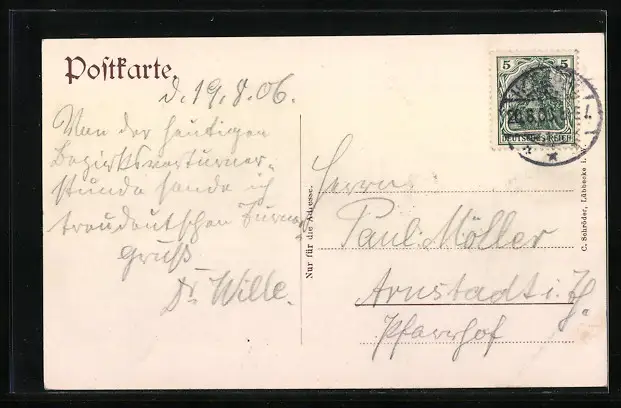 Postkarte.
d. 19.8.06.
Von der heutigen
Bezirksvorturner-
stunde sende ich
treudeutschen Turner-
gruß
Dr. Wille.
Nur für die Adresse.
Herrn
Paul Möller
Arnstadt i. Th.
Pfarrhof
5 5
DEUTSCHES REICH
20.8.06
C. Schröder, Lübbecke i. W.